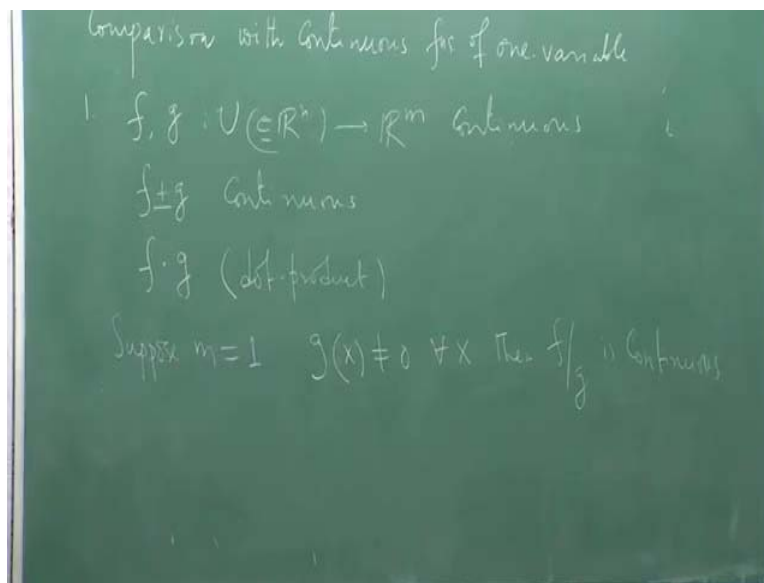 Comparison with Continuous fns of one variable
1. f, g : U(⊆ℝⁿ) → ℝᵐ Continuous
f±g Continuous
f·g (dot-product)
Suppose m = 1 g(x) ≠ 0 ∀x Then f/g is Continuous